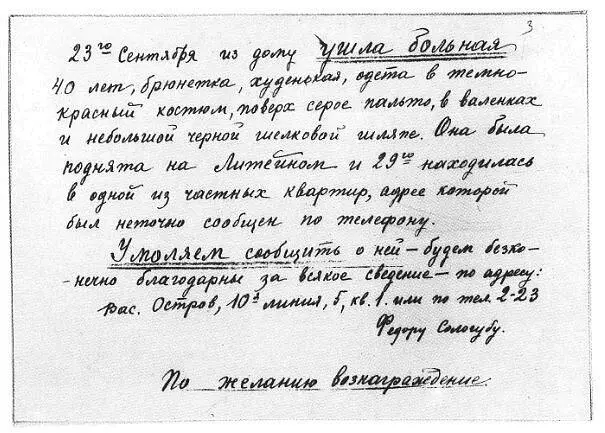 3
23го Сентября из дому ушла больная
40 лет, брюнетка, худенькая, одета в темно-
красный костюм, поверх серое пальто, в валенках
и небольшой черной шелковой шляпе. Она была
поднята на Литейном и 29го находилась
в одной из частных квартир, адрес которой
был неточно сообщен по телефону.
Умоляем сообщить о ней — будем безко-
-нечно благодарны за всякое сведение — по адресу:
Вас. Остров, 10я линия, 5, кв. 1. или по тел. 2-23
Федору Сологубу.
По желанию вознаграждение.